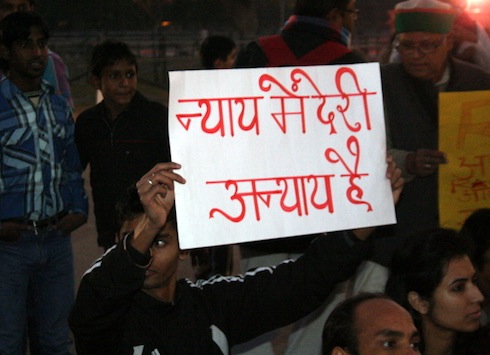 न्याय में देरी
अन्याय है